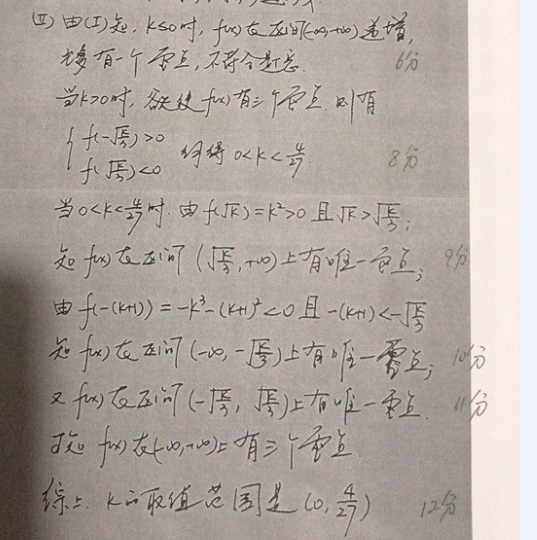 (Ⅱ) 由(Ⅰ)知, k≤0时, f(x)在区间(-∞,+∞)递增,
至多有一个零点, 不符合题意. 6分
当k>0时, 欲使f(x)有三个零点, 则有
{ f(-√(k/3))>0
f(√(k/3))<0 解得 0<k<4/27 8分
当0<k<4/27时. 由f(√k)=k²>0 且√k>√(k/3);
知f(x)在区间(√(k/3),+∞)上有唯一零点; 9分
由f(-(k+1))=-k³-(k+1)²<0 且-(k+1)<-√(k/3)
知f(x)在区间(-∞,-√(k/3))上有唯一零点; 10分
又f(x)在区间(-√(k/3), √(k/3))上有唯一零点. 11分
故知f(x)在(-∞,+∞)上有三个零点
综上. k的取值范围是(0, 4/27) 12分